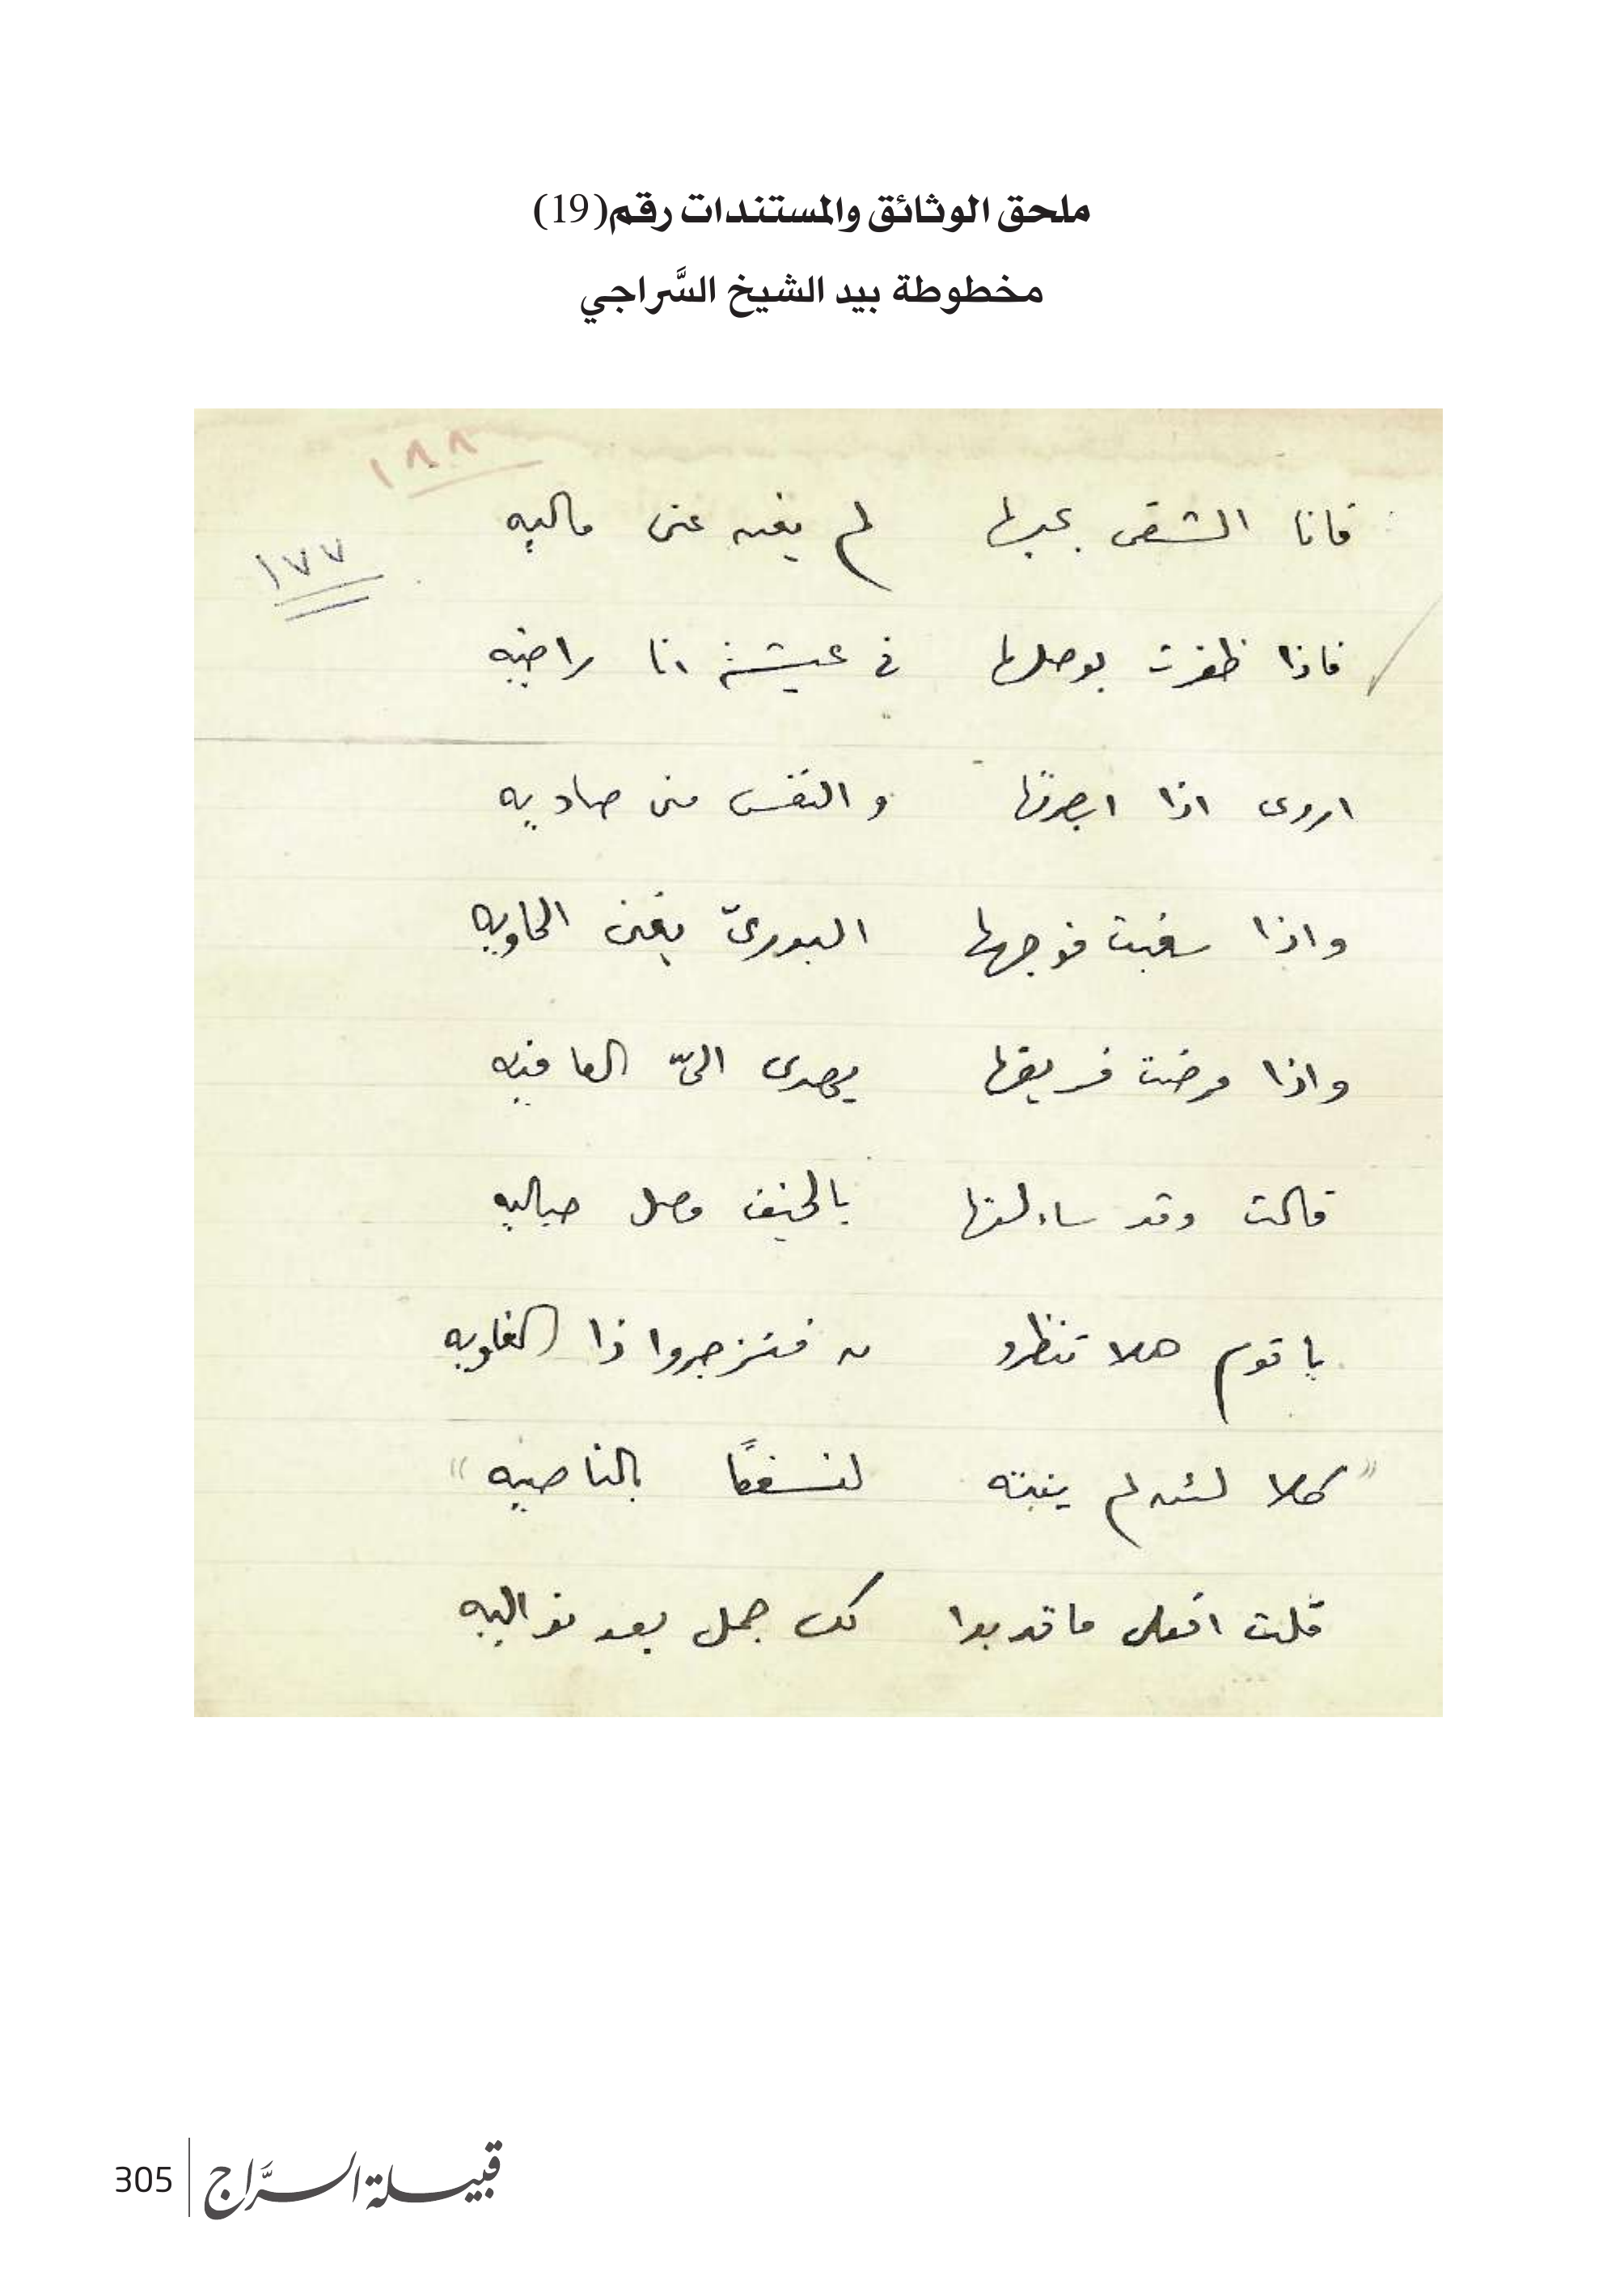 ملحق الوثائق والمستندات رقم(19)
مخطوطة بيد الشيخ السَّراجي
١٨٨
١٧٧
فانا الشقى بحبها لم يغن عنى ماليه
فاذا ظفرت بوصلها فى عيشة انا راضيه
اروى اذا ابصرتها والنفس منى صاديه
واذا سغبت فوجهها البدرىّ يغنى الخاويه
واذا مرضت فريقها يهدى الىّ العافيه
قالت وقد ساءلتها بالخيف وصل حباليه
يا قوم هلا تنظرو ن فتزجروا ذا الغاويه
"كلا لئن لم ينته لنسفعًا بالناصيه"
قلت افعلى ما قد بدا لك جمل بعد نواليه
305 قبيلة السرَّاج